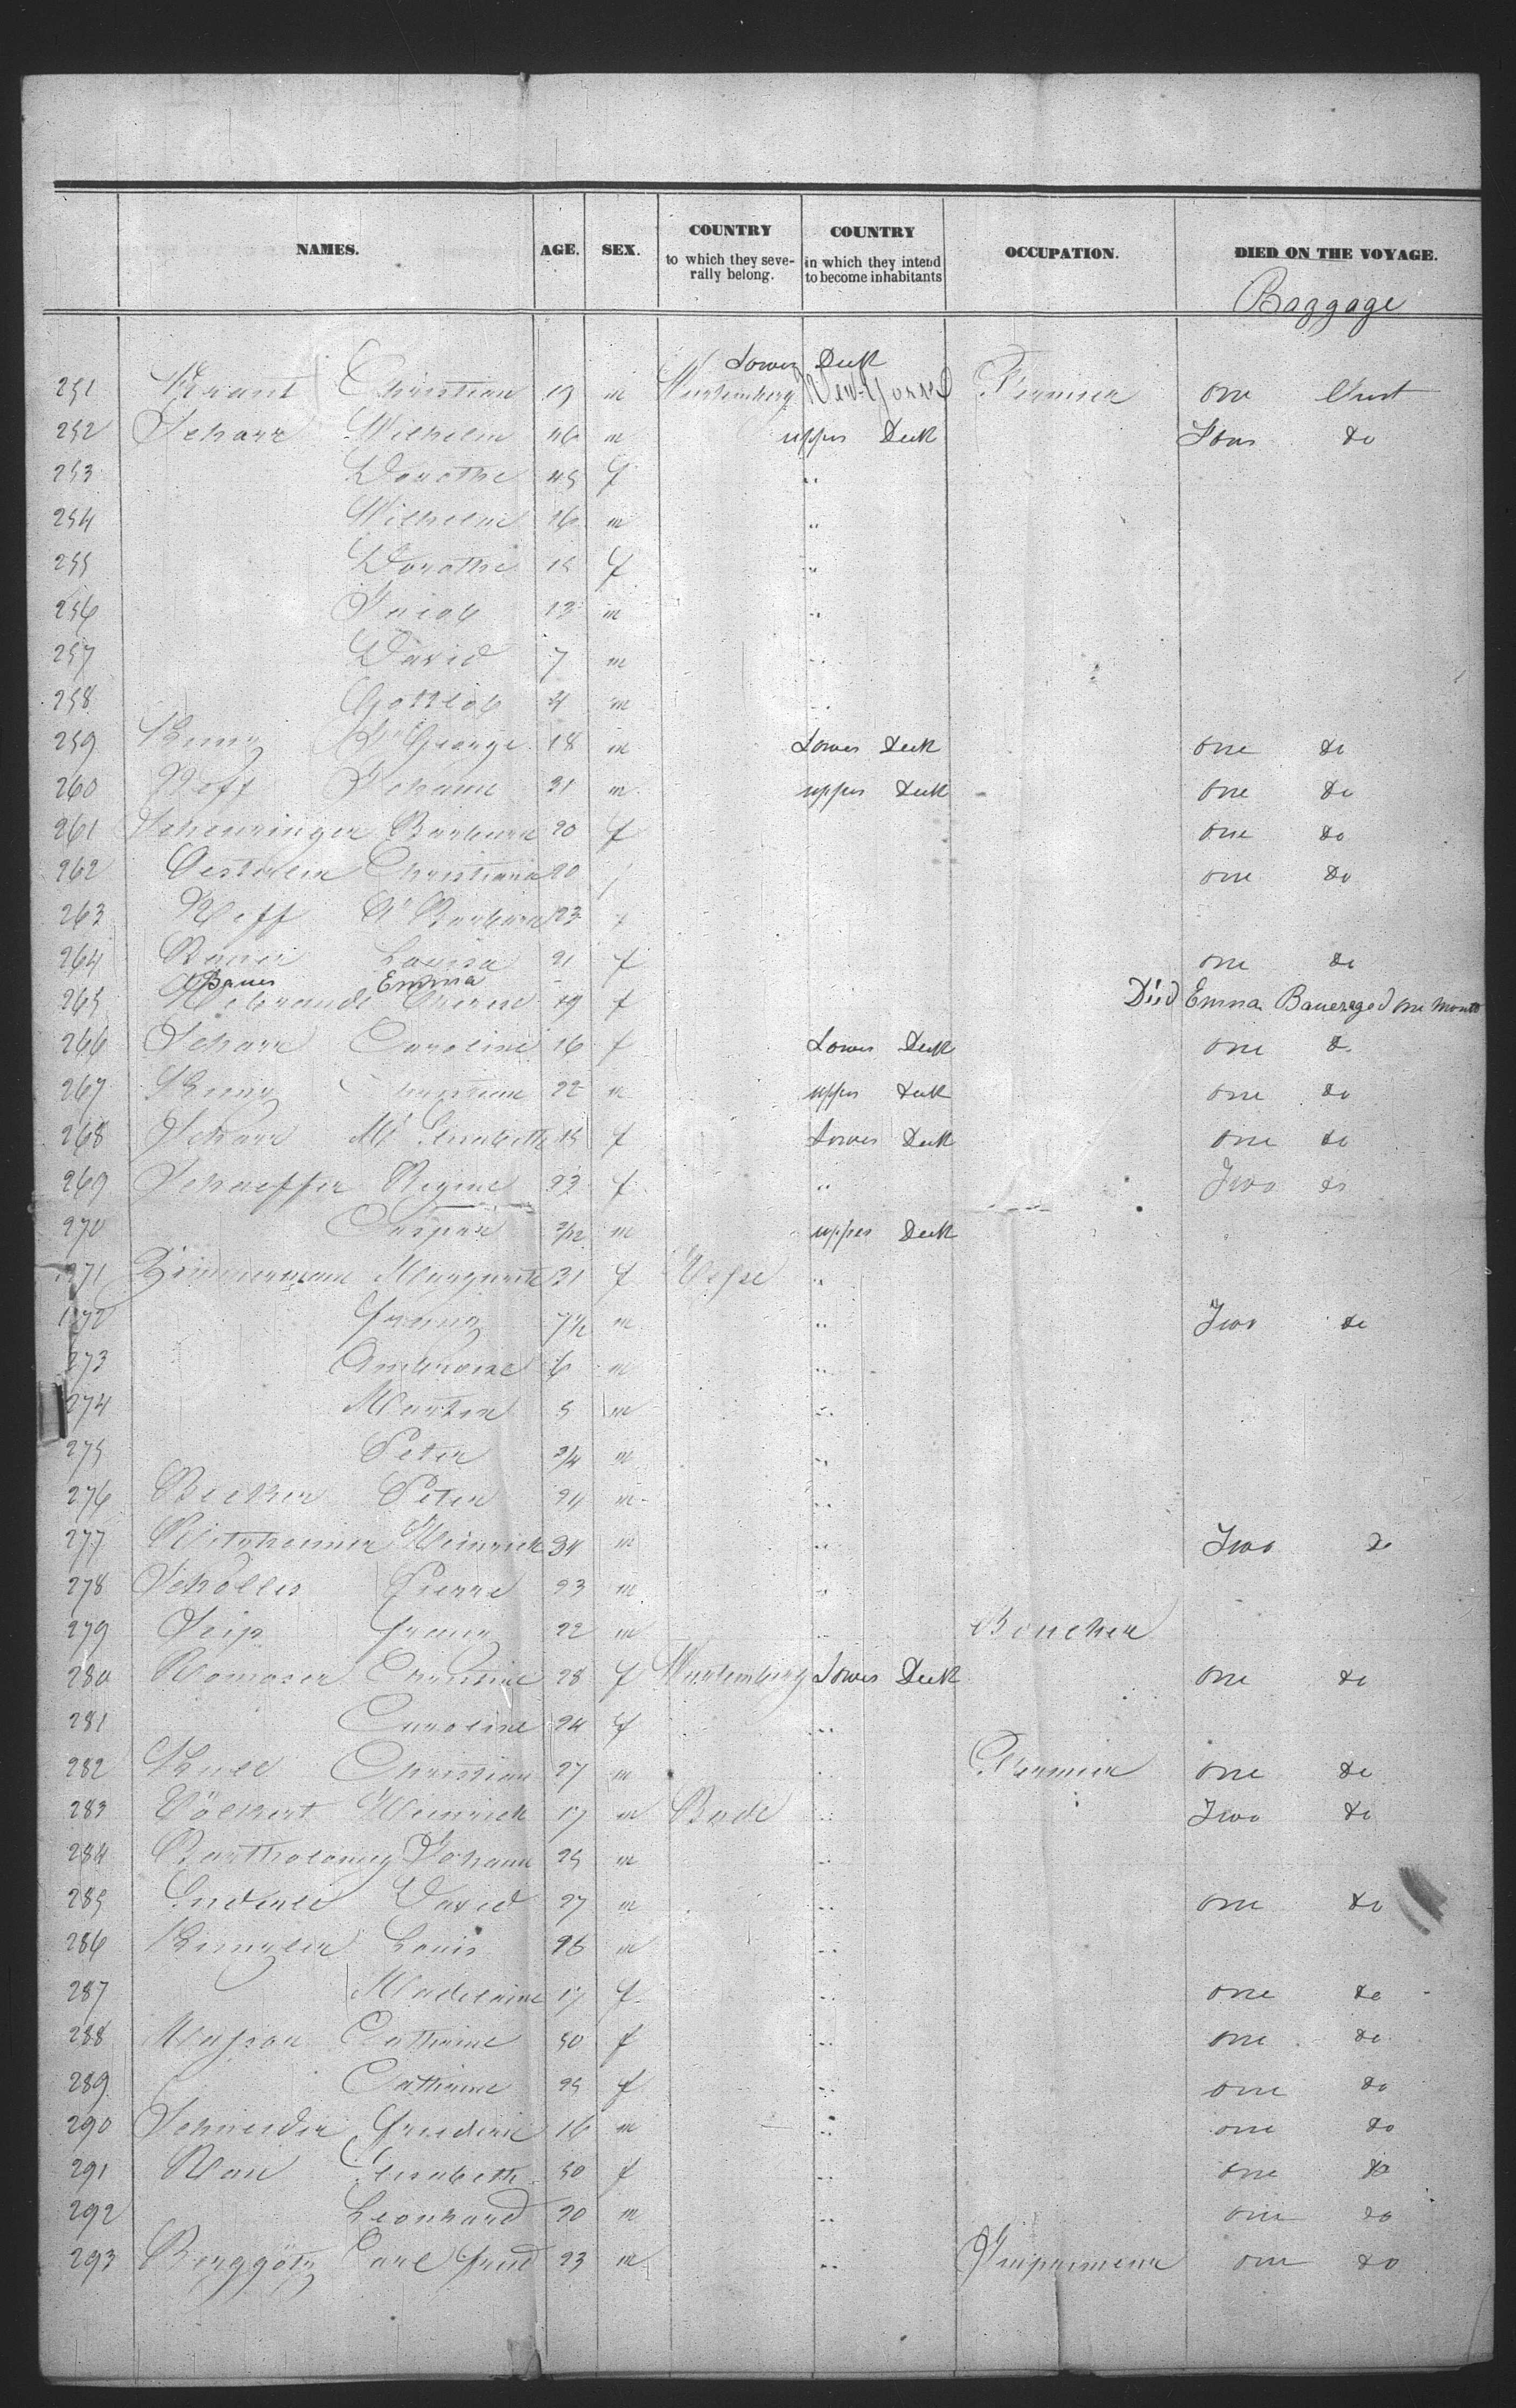 NAMES. AGE. SEX. COUNTRY to which they severally belong. COUNTRY in which they intend to become inhabitants OCCUPATION. DIED ON THE VOYAGE.
Baggage
Lower Deck
251 Christian 19 m Wurtemberg New-York Fermier one Chest
252 Scharr Wilhelm 46 m upper Deck Four do
253 Dorothe 45 f "
254 Wilhelm 16 m "
255 Dorothe 15 f "
256 Jacob 12 m "
257 David 7 m "
258 Gottlob 4 m "
259 George 18 m Lower Deck one do
260 Neff Johann 21 m upper Deck one do
261 Scheuringer Barbara 20 f one do
262 Oesterlen Christiana 20 one do
263 Neff Barbara 23
264 Bauer Louisa 21 f one do
Bauer Emma
265 19 f Died Emma Bauer aged one month
266 Scharr Caroline 16 f Lower Deck one do
267 Christian 22 m upper Deck one do
268 Scharr Elisabeth 15 f Lower Deck one do
269 Schaeffer Regine 23 f " Two do
270 Caspar 2/12 m upper Deck
271 Zimmermann Marguerite 31 f Hesse "
272 Franz 7 1/2 m " Two do
273 Ambroise 6 m "
274 Martin 5 m "
275 Peter 3/4 m "
276 Becker Peter 24 m "
277 Heinrich 34 m " Two do
278 Scholles Pierre 23 m "
279 Seip Franz 22 m " Boucher
280 Christine 28 f Wurtemberg Lower Deck one do
281 Caroline 24 f "
282 Christian 27 m Fermier one do
283 Völkert Heinrich 17 m Bade " Two do
284 Bartholomey Johann 25 m "
285 David 27 m " one do
286 Louis 26 m "
287 Madelaine 17 f " one do
288 Catherine 50 f " one do
289 Catherine 25 f " one do
290 Schneider Frederic 16 m " one do
291 Elisabeth 50 f " one do
292 Leonhard 20 m " one do
293 Berggötz Carl Fried 23 m " Imprimeur one do